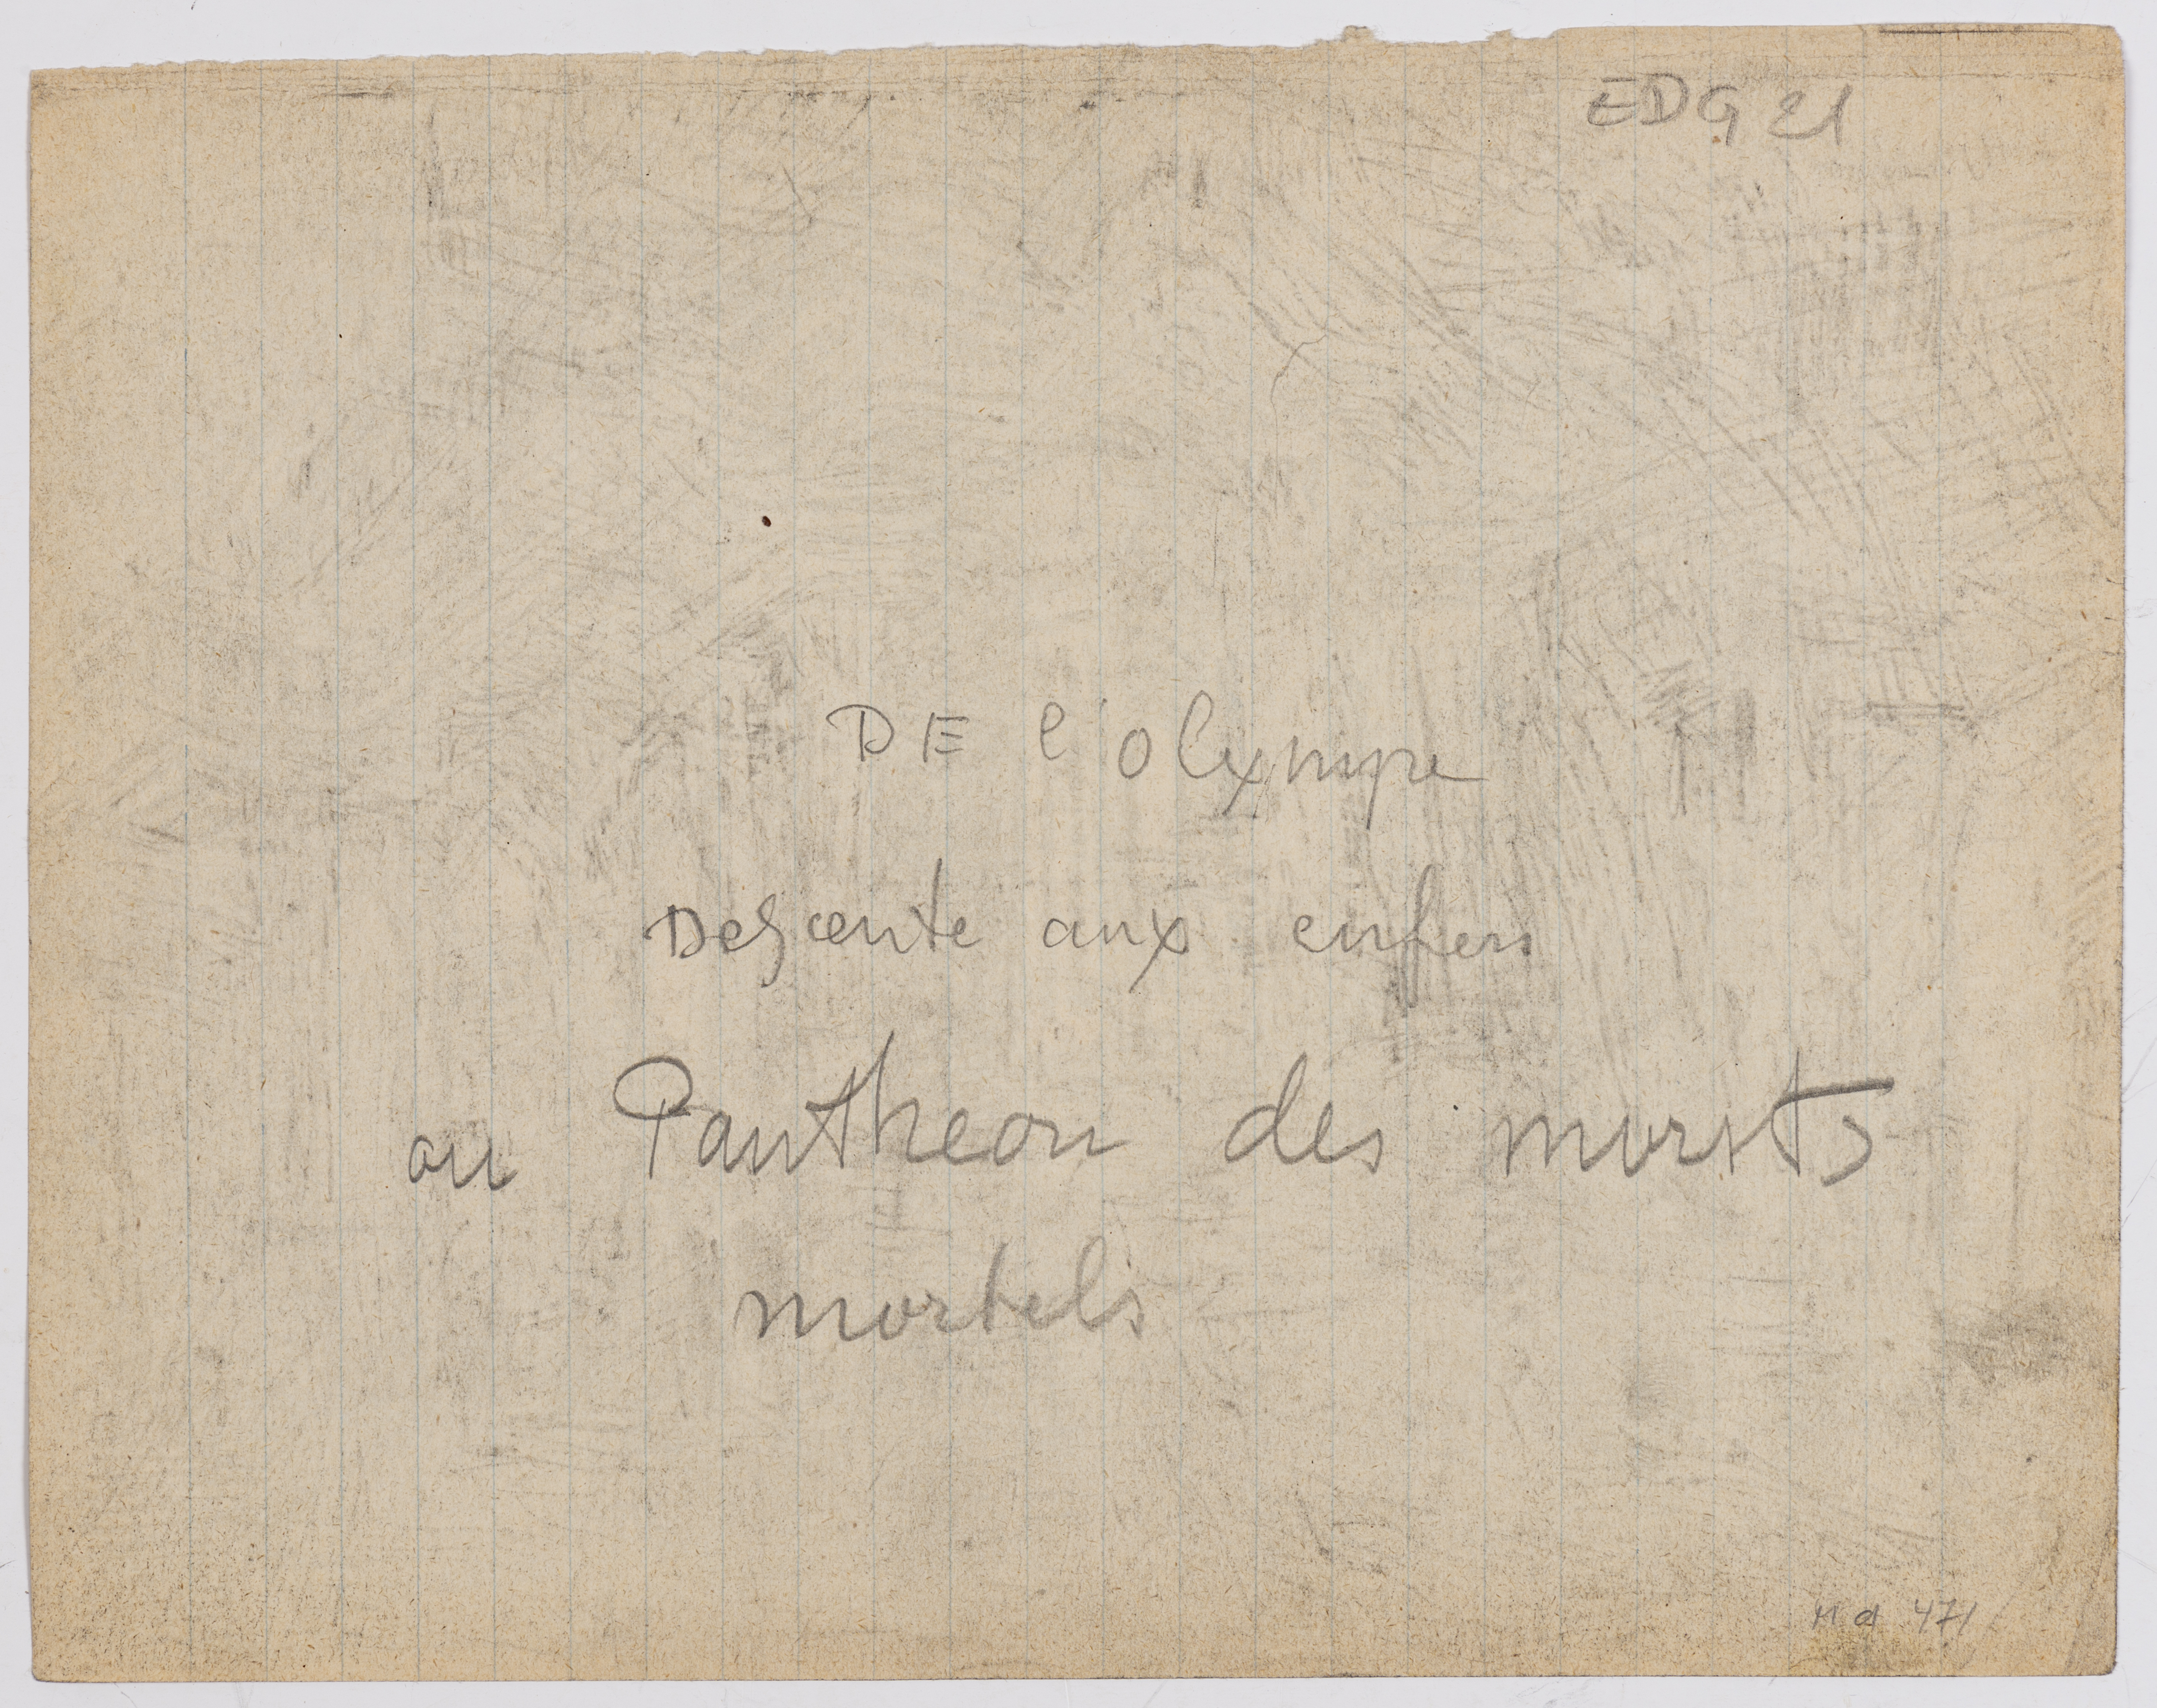 EDG 21
DE l'olympe
Descente aux enfers
au Pantheon des morts
mortels
Md 471